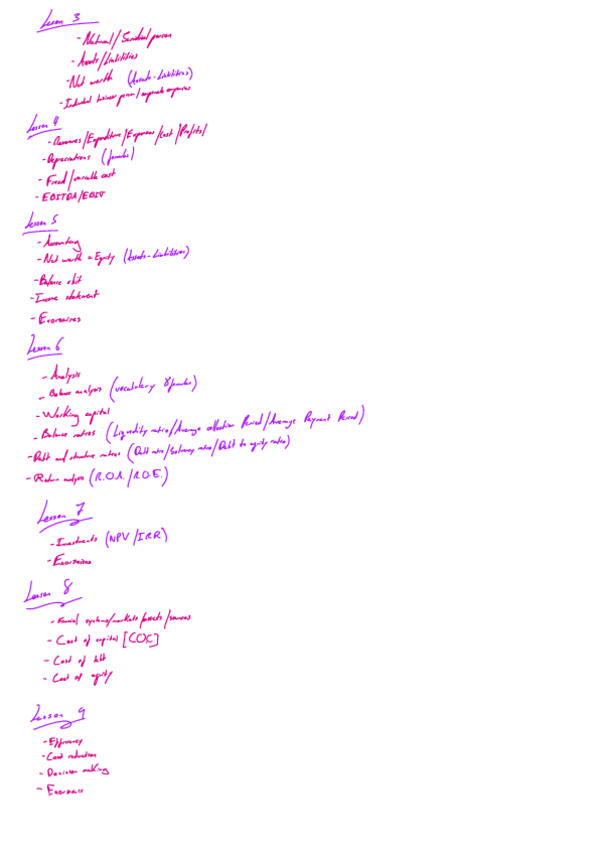 Lesson 3
- Natural/Juridical person
- Assets/Liabilities
- Net worth (Assets-Liabilities)
- Individual business person/corporate
Lesson 4
- Revenues/Expenditure/Expenses/Cost/Profits/
- Depreciations (formulas)
- Fixed/variable cost
- EBITDA/EBIT
Lesson 5
- Accounting
- Net worth = Equity (Assets-Liabilities)
- Balance
- Income statement
- Exercises
Lesson 6
- Analysis
- Balance analysis (vocabulary & formulas)
- Working capital
- Balance ratios (Liquidity ratio/Average collection Period/Average Payment Period)
- Debt and structure ratios (Debt ratio/Solvency ratio/Debt to equity ratio)
- Return analysis (R.O.A./R.O.E.)
Lesson 7
- Investments (NPV/IRR)
- Exercises
Lesson 8
- systems/markets/assets/sources
- Cost of capital [COC]
- Cost of debt
- Cost of equity
Lesson 9
- Efficiency
- Cost reduction
- Decision making
- Exercises